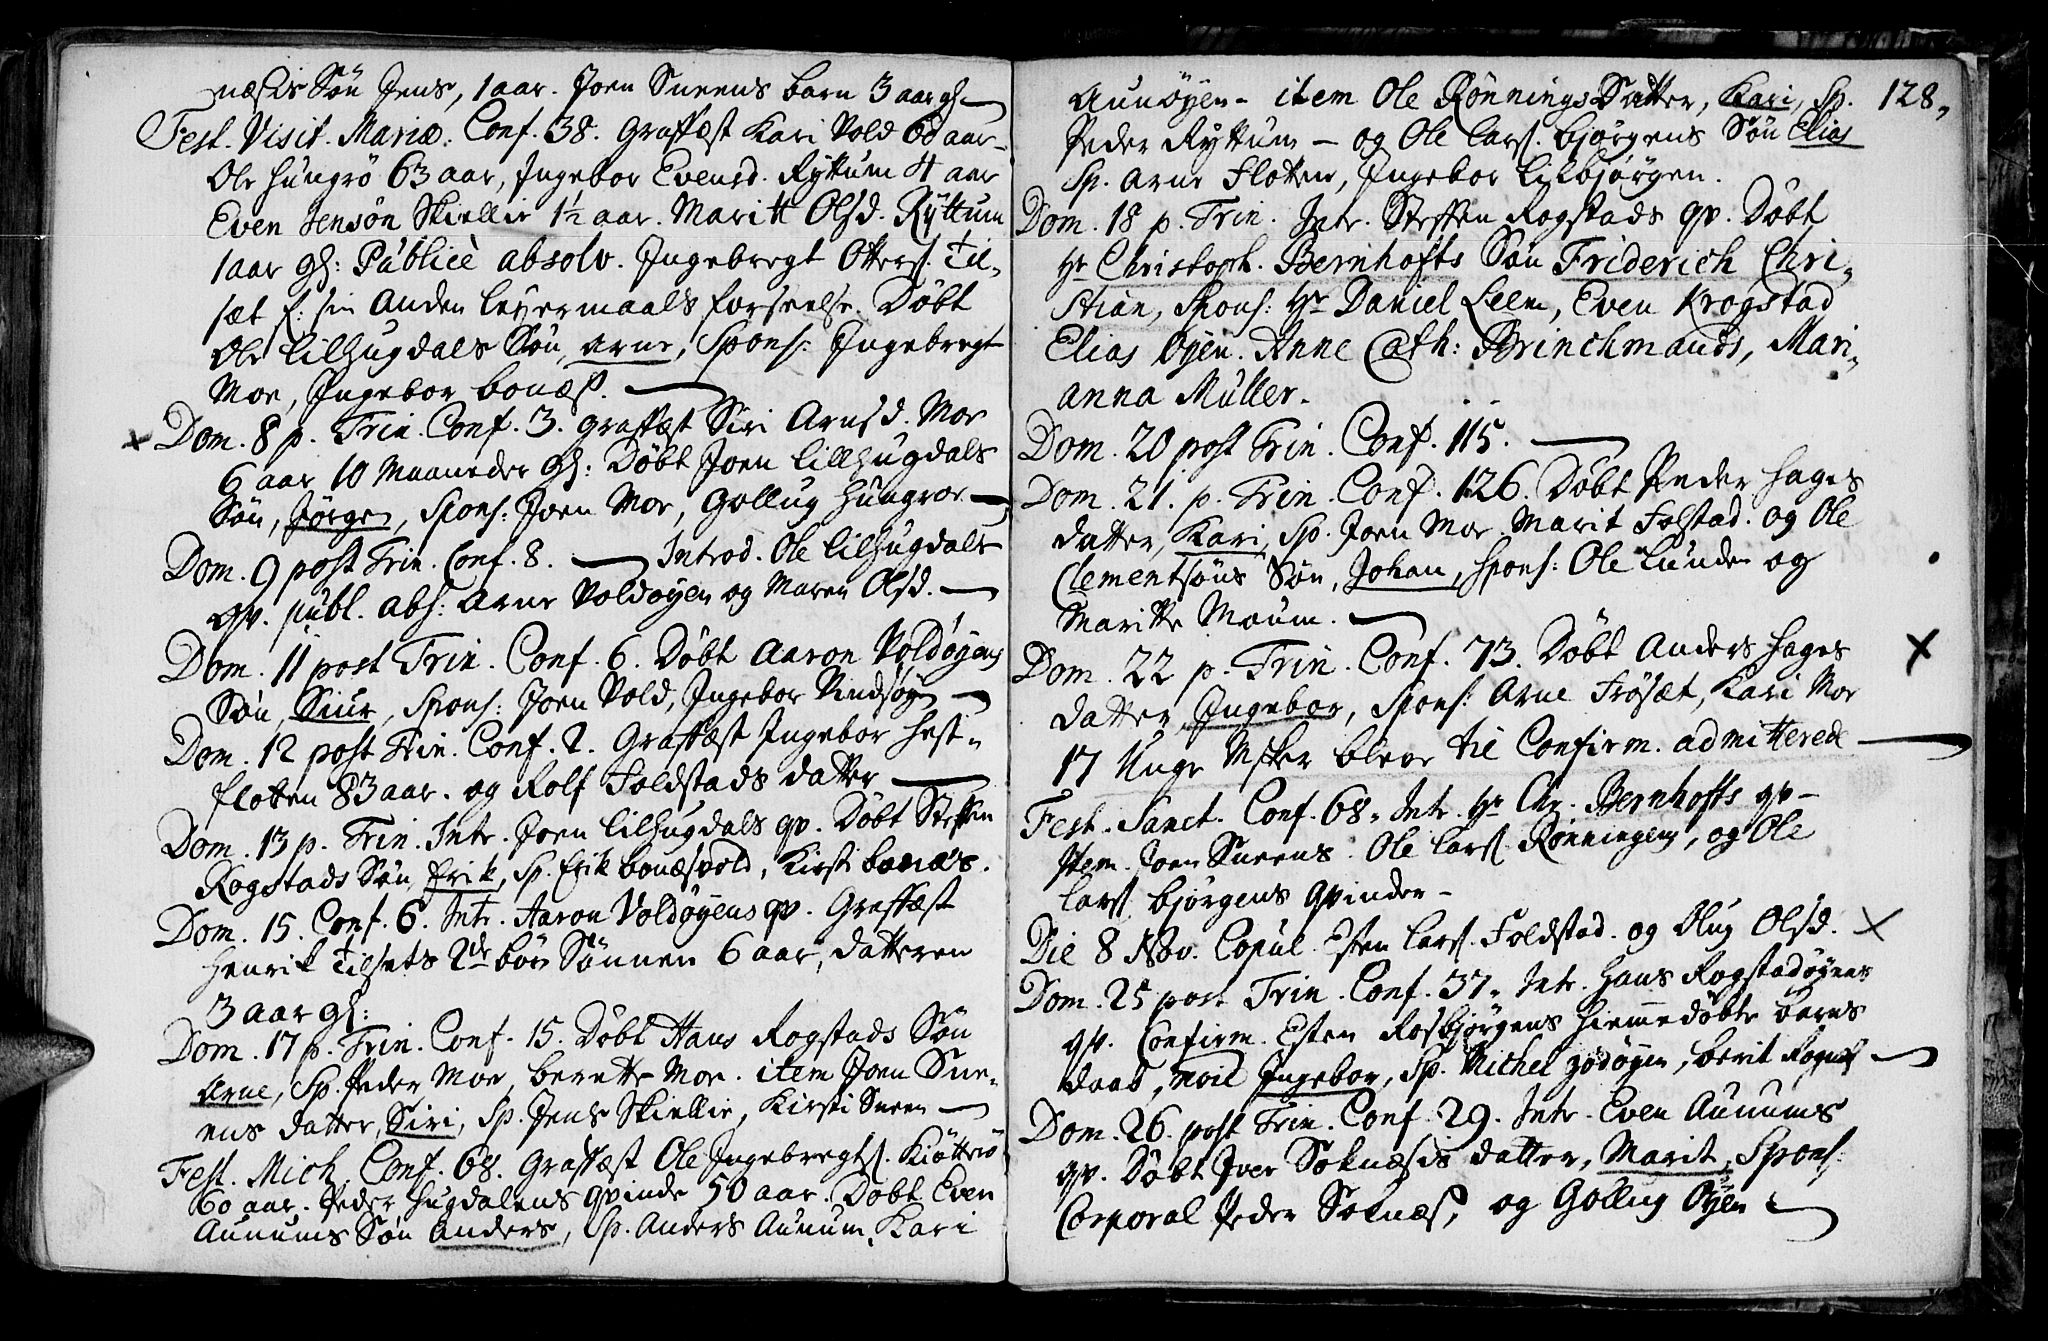 næsis Søn Jens, 1 aar. Joen Sneens barn 3 aar gl.
Fest. Visit. Mariæ. Conf. 38. Graffæst Kari Vold 60 aar
Ole Hungrø 63 aar, Ingebor Evensd. Ryttum 4 aar
Even Jensøn Skiellie 1½ aar. Maritt Olsd. Ryttum
1 aar gl: Publicè absolv. Ingebregt Otters. Til-
sæt f: sin Anden leyermaals forseelse. Døbt
Ole Lilhugdals Søn, Arne, Spons: Ingebregt
Moe, Ingebor bonæs.
Dom. 8 p. Trin. Conf. 3. graffæst Siri Arnsd. Moe
6 aar 10 Maaneder gl: Døbt Joen Lillhugdals
Søn, Jørgen, Spons: Joen Moe, Gollug Hungroe
Dom. 9 post Trin. Conf. 8. Introd. Ole Lilhugdals
qv. publ. abs: Arne Voldøyen og Maren Olsd.
Dom. 11 post Trin. Conf. 6. Døbt Aaron Voldøyens
Søn, Siur, Spons: Joen Vold, Ingebor Vindsøyn
Dom. 12 post Trin. Conf. 2. Graffæst Ingebor Hest-
flotten 83 aar. og Rolf Foldstads datter
Dom. 13 p. Trin. Intr. Joen Lilhugdals qv. Døbt Steffen
Rogstads Søn, Erik, Sp. Erik bonæsvold, Kirsti bonæs.
Dom. 15. Conf. 6. Intr. Aaron Voldøyens qv. Graffæst
Henrik Tilsets 2de børn Sønnen 6 aar, datteren
3 aar gl:
Dom. 17 p. Trin. Conf. 15. Døbt Hans Rogstads Søn
Arne, Sp. Peder Moe, berette Moe. item Joen Sne-
ens datter, Siri, Sp. Jens Skiellie, Kirsti Sneen
Fest. Mich. Conf. 68. Graffæst Ole Ingebregts. Kiøttrø
60 aar. Peder Hugdalens qvinde 50 aar. Døbt Even
Aunums Søn Anders, Sp. Anders Aunum, Kari
128.
Aunøyen - item Ole Rønnings Datter, Kari, Sp.
Peder Ryttum - og Ole Lars. bjørgens Søn Elias
Sp. Arne Flotten, Ingebor Lilbjørgen.
Dom. 18 p. Trin. Intr. Steffen Rogstads qv. Døbt
Hr Christoph. Bernhofts Søn Friderich Chri-
stian, Spons: Hr Daniel Leem, Even Krogstad
Elias Øyen. Anne Cath: Brinchmands, Mari-
anna Müller.
Dom. 20 post Trin. Conf. 115.
Dom. 21. p. Trin. Conf. 126. Døbt Peder Hages
datter, Kari, Sp. Joen Moe Marit Folstad. og Ole
Clementsøns Søn, Johan, Spons: Ole Lunden og
Maritte Moum.
Dom. 22 p. Trin. Conf. 73. Døbt Anders Hages
datter Ingebor, Spons: Arne Frøsæt, Kari Moe
17 Unge Msker bleve til Confirm. admitterede
Fest. Sanct. Conf. 68. Intr. Hr Chr. Bernhofts qv-
Item. Joen Sneens. Ole Lars. Rønningens, og Ole
Lars. bjørgens qvinder -
Die 8 Nov. Copul. Esten Lars. Foldstad. og Olug Olsd.
Dom. 25 post Trin. Conf. 37. Intr. Hans Rogstadøyens
qv. Confirm. Esten Rosbjørgens Hiemmedøbte barns
daab, nvil Ingebor, Sp. Michel godøyen, berit Rognes
Dom. 26. post Trin. Conf. 29. Intr. Even Aunums
qv. Døbt Iver Soknæsis datter, Marit, Spons:
Corporal Peder Soknæs, og Gollug Øyen